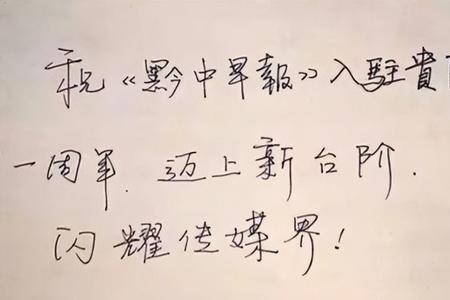 祝《黔中早報》入駐貴
一周年.迈上新台阶.
闪耀传媒界!